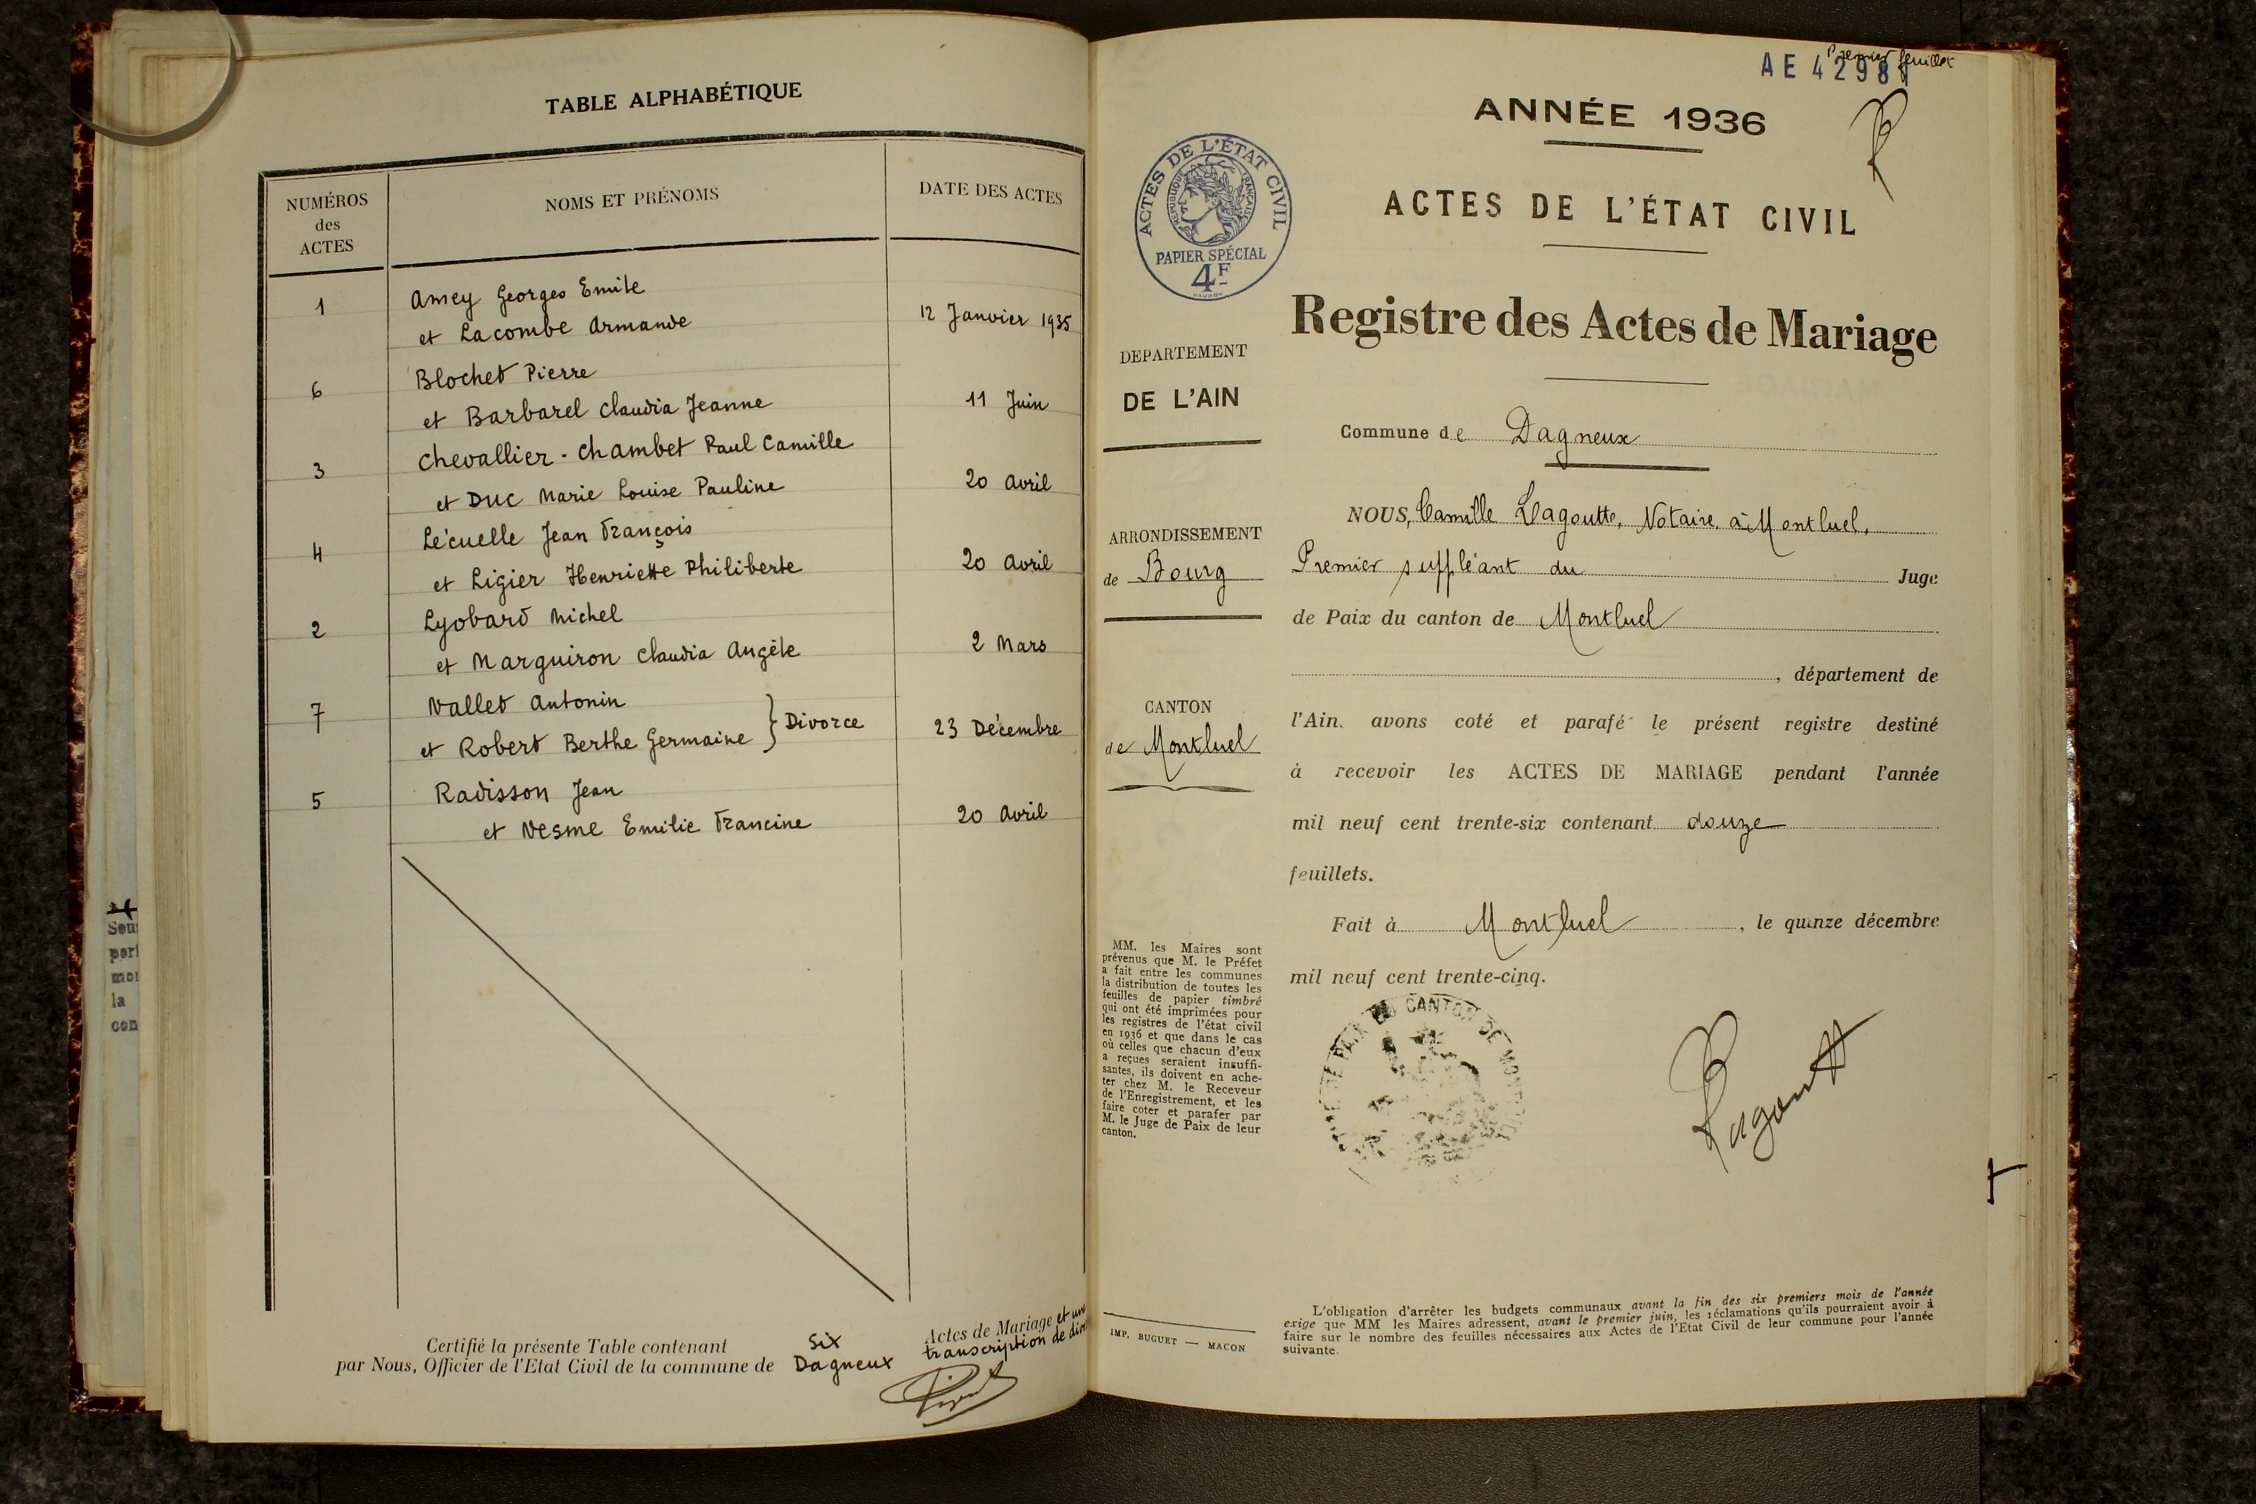 TABLE ALPHABÉTIQUE
NUMÉROS
des
ACTES
NOMS ET PRÉNOMS
DATE DES ACTES
1
Amey Georges Emile
et Lacombe Armande
12 Janvier 1935
6
Blochet Pierre
et Barbarel Claudia Jeanne
11 Juin
3
Chevallier-Chambet Paul Camille
et Duc Marie Louise Pauline
20 Avril
4
Lécuelle Jean François
et Ligier Henriette Philiberte
20 Avril
2
Lyobard Michel
et Marguiron Claudia Angèle
2 Mars
7
Vallet Antonin
et Robert Berthe Germaine } Divorce
23 Décembre
5
Radisson Jean
et Vesme Emilie Francine
20 Avril
Certifié la présente Table contenant six Actes de Mariage et une
transcription de
par Nous, Officier de l'Etat Civil de la commune de Dagneux
Sous
mon
la
con
Premier feuillet
AE 42981
ANNÉE 1936
ACTES DE L'ÉTAT CIVIL
RÉPUBLIQUE FRANÇAISE
PAPIER SPÉCIAL
4F
ACTES DE L'ÉTAT CIVIL
Registre des Actes de Mariage
DEPARTEMENT
DE L'AIN
Commune de Dagneux
ARRONDISSEMENT
de Bourg
CANTON
de Montluel
NOUS, Camille Lagoutte, Notaire à Montluel,
Premier suppléant du Juge
de Paix du canton de Montluel
, département de
l'Ain. avons coté et parafé le présent registre destiné
à recevoir les ACTES DE MARIAGE pendant l'année
mil neuf cent trente-six contenant douze
feuillets.
Fait à Montluel, le quinze décembre
mil neuf cent trente-cinq.
DE PAIX DU CANTON DE
Lagoutte
MM. les Maires sont
prévenus que M. le Préfet
a fait entre les communes
la distribution de toutes les
feuilles de papier timbré
qui ont été imprimées pour
les registres de l'état civil
en 1936 et que dans le cas
où celles que chacun d'eux
a reçues seraient insuffi-
santes, ils doivent en ache-
ter chez M. le Receveur
de l'Enregistrement, et les
faire coter et parafer par
M. le Juge de Paix de leur
canton.
IMP. BUGUET — MACON
L'obligation d'arrêter les budgets communaux avant la fin des six premiers mois de l'année
exige que MM les Maires adressent, avant le premier juin, les réclamations qu'ils pourraient avoir à
faire sur le nombre des feuilles nécessaires aux Actes de l'Etat Civil de leur commune pour l'année
suivante.